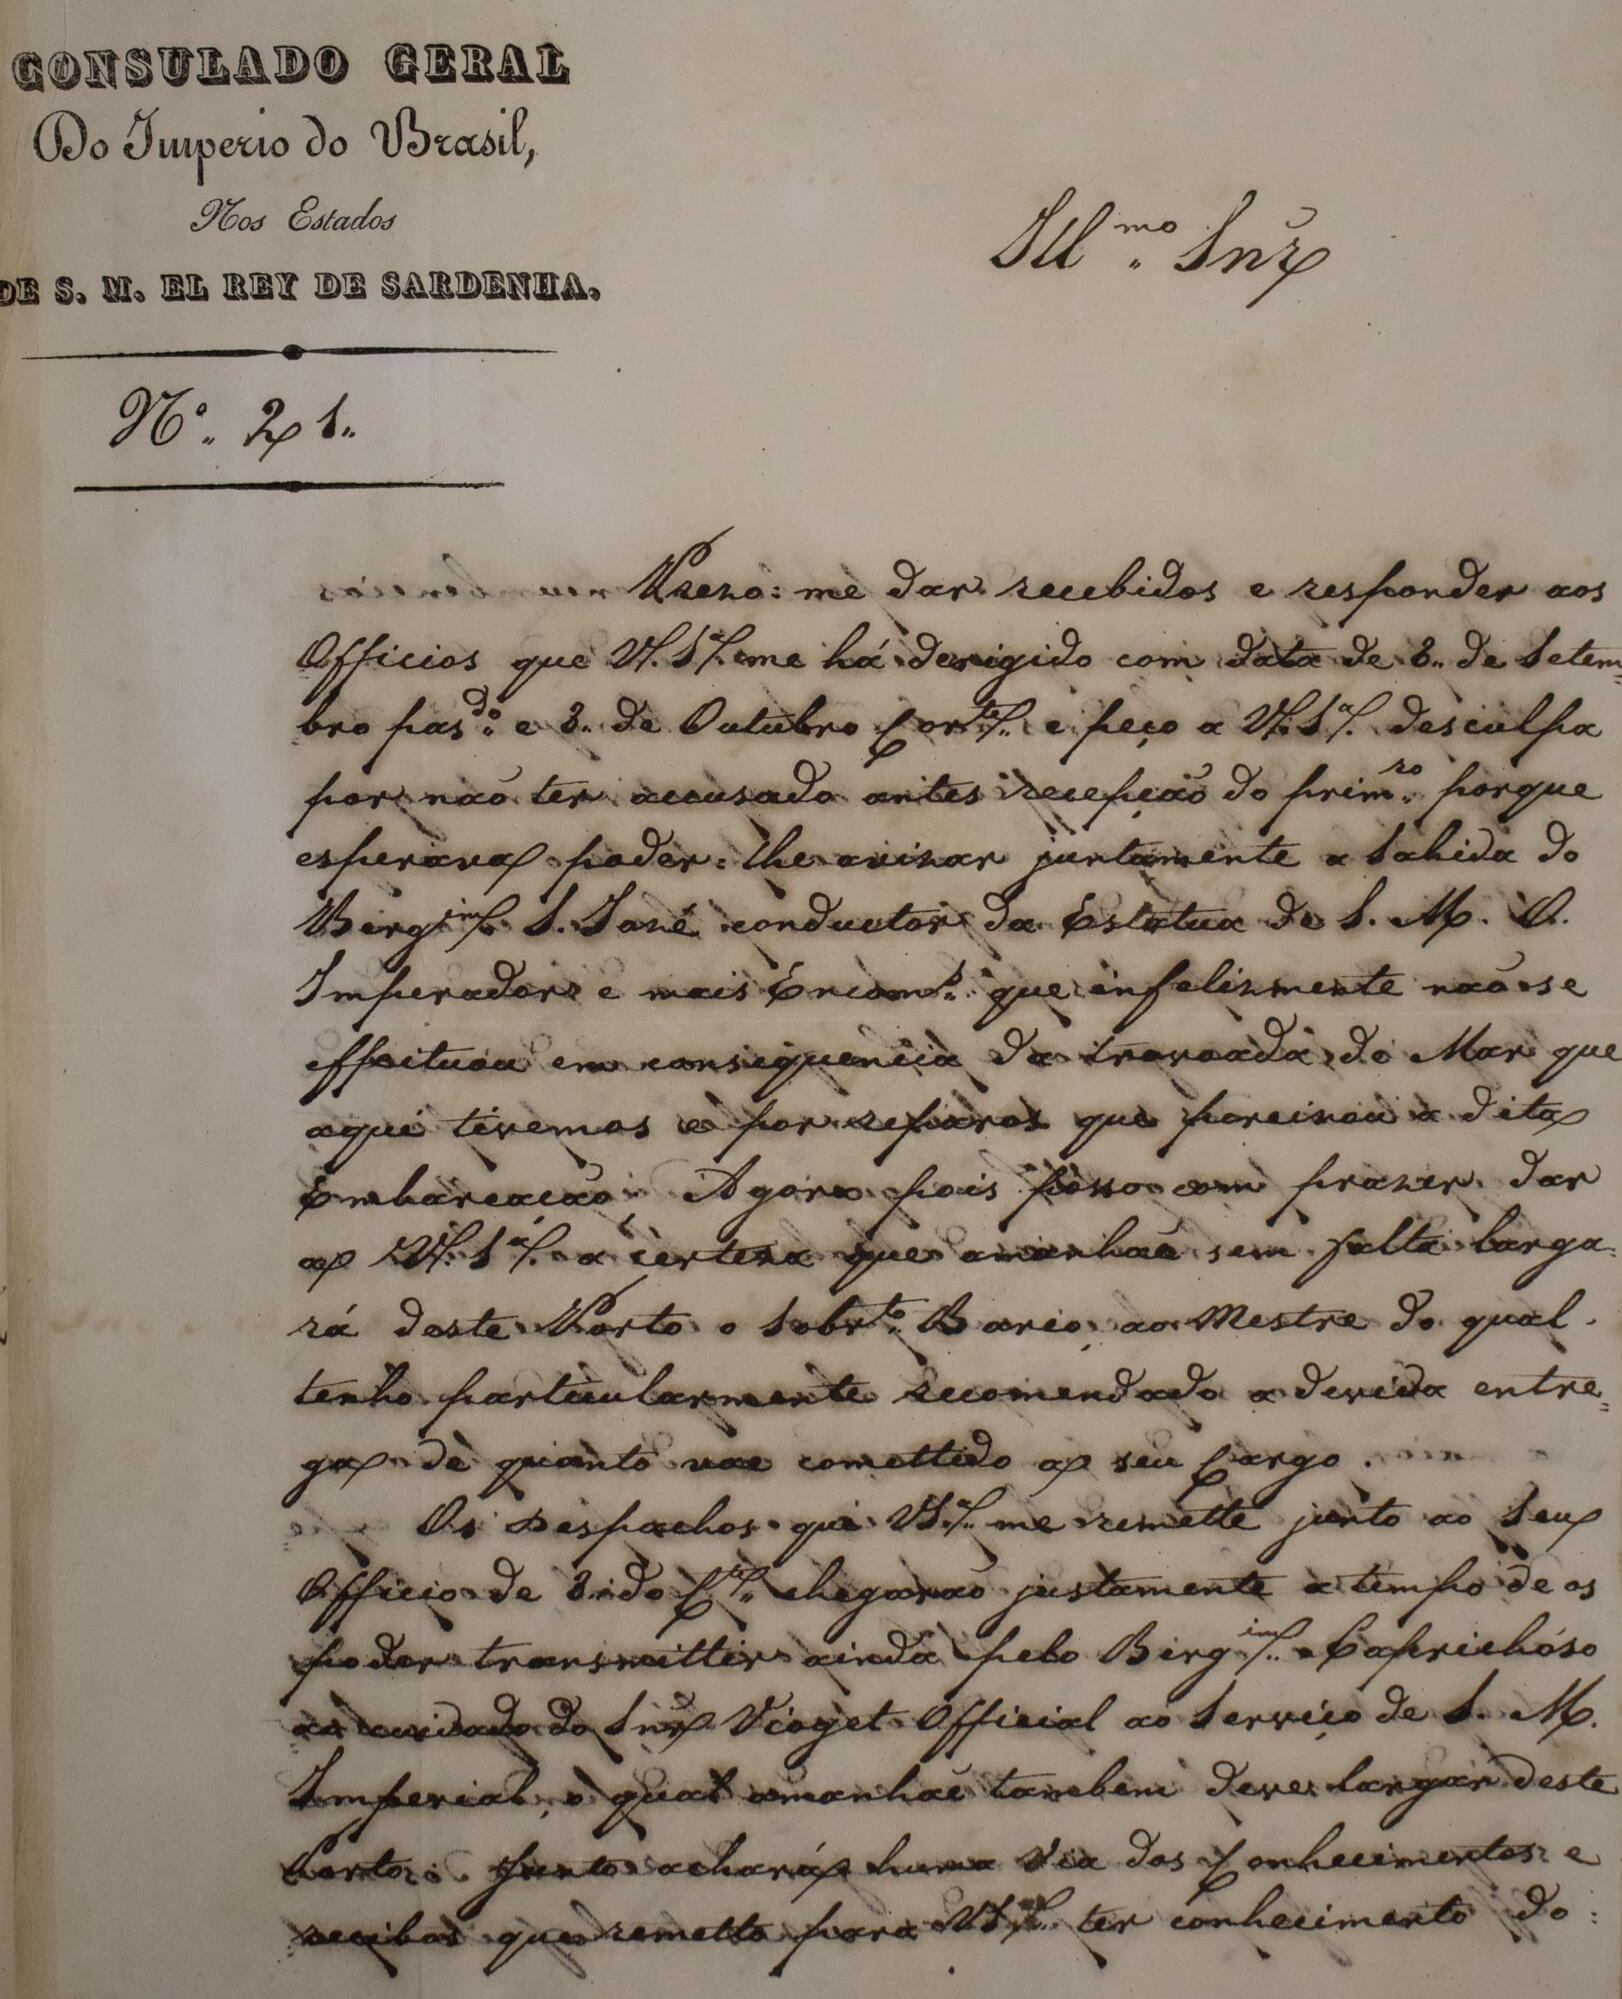 CONSULADO GERAL
Do Imperio do Brasil,
Nos Estados
DE S. M. EL REY DE SARDENHA.
Nº. 21.
Illmo. Snr
Prezo-me dar recebidos e responder aos
Officios que V. Sa. me há derigido com data de 8. de Setem=
bro pasdo. e 8. de Outubro Corte. e peço a V. Sa. desculpa
por não ter accusado antes recepção do primro. porque
esperava poder-lhe avisar juntamente a Sahida do
Bergim. S. José conductor da Estatua de S. M. O.
Imperador e mais Encomdas. que infelismente não se
effeituou em consequencia da trovoada do Mar que
aqui tivemos e por reparos que pareisou a dita
Embarcação. Agora pois posso com prazer dar
a V. Sa. a certeza que amanhãe sem falta larga=
rá deste Porto o Sobrto. Barco, ao Mestre do qual
tenho particularmente recomendado a devida entre=
ga de quanto vae comettido a seu Cargo.
Os Despachos que V. Sa. me remette junto ao Seu
Officio de 8. do Cte. chegarão justamente a tempo de os
poder transmittir ainda pelo Bergim. Caprichóso
ao cuidado do Snr Vioget Official ao Serviço de S. M.
Imperial, o qual amanhãe tambem deve largar deste
Porto. Junto achará huma Via dos Conhecimentos e
recibos que remetto para V. Sa. ter conhecimento do